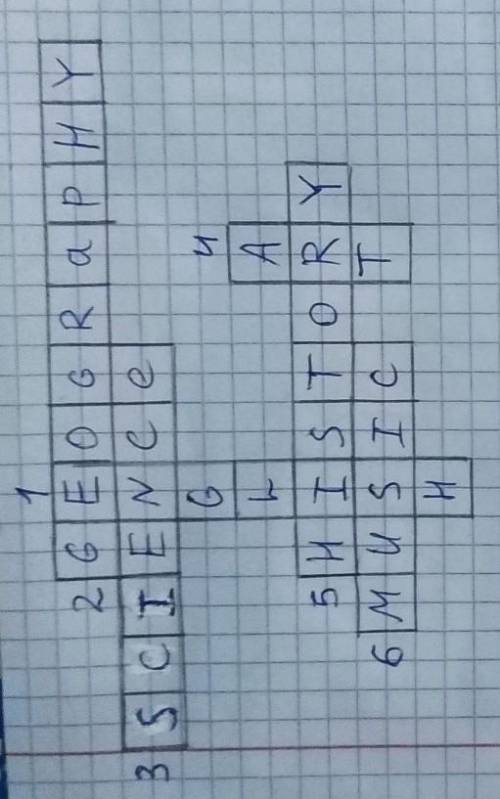 1
2 GEOGRaPHY
3 SCIENCe
G 4
L A
5 HISTORY
6 MUSIC T
H